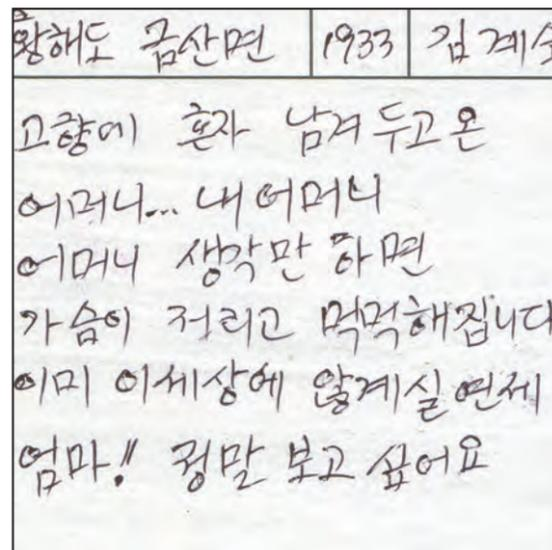 황해도 금산면 1933 김계
고향에 혼자 남겨 두고 온
어머니... 내 어머니
어머니 생각만 하면
가슴이 저리고 먹먹해집니다
이미 이세상에 않계실 연제
엄마!! 정말 보고 싶어요